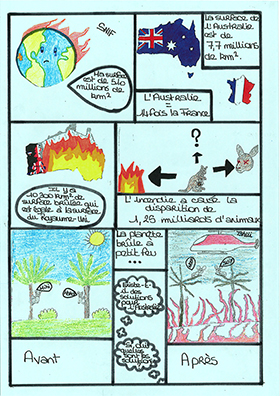 Snif
La surface
de
l'Australie
est de
7,7 millions
de km².
Ma surface
est de 510
millions de
km²
L'Australie
=
14 fois la France
?
Il y a
10 300 km² de
surface brûlée qui
est égale à la surface
du Royaume-Uni
L'incendie a causé la
disparition de
1,25 milliards d'animaux
La planète
brûle à
petit feu
...
Existe-t-
il des
solutions
pour
l'Australie
Avant
Après